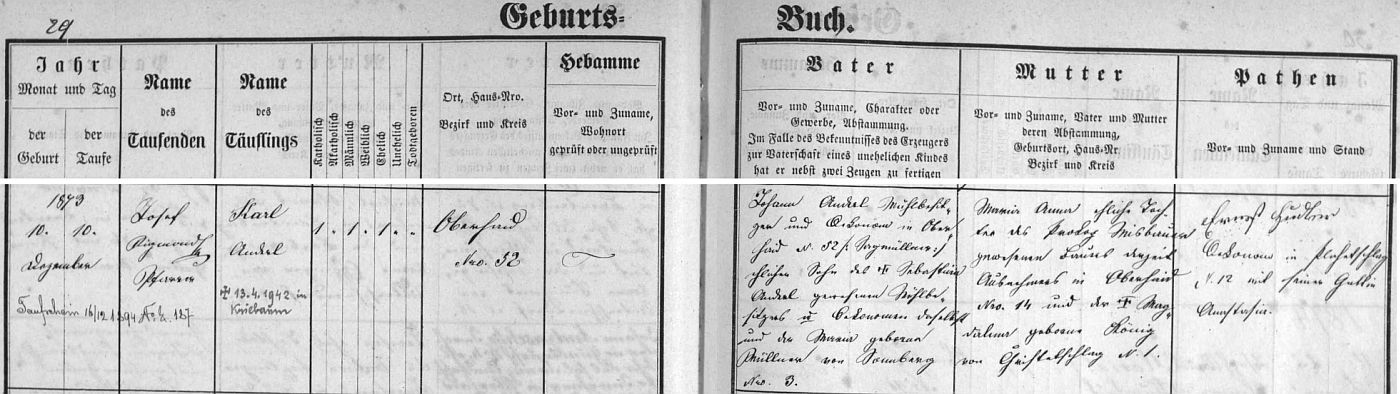 29
Geburts=
Buch.
Jahr
Monat und Tag
der Geburt
der Taufe
Name
des
Taufenden
Name
des
Täuflings
Katholisch
Akatholisch
Männlich
Weiblich
Ehelich
Unehelich
Todtgeboren
Ort, Haus=Nro.
Bezirk und Kreis
Hebamme
Vor= und Zuname,
Wohnort
geprüft oder ungeprüft
Vater
Vor= und Zuname, Charakter oder
Gewerbe, Abstammung.
Im Falle des Bekenntnisses des Erzeugers
zur Vaterschaft eines unehelichen Kindes
hat er nebst zwei Zeugen zu fertigen
Mutter
Vor= und Zuname, Vater und Mutter
deren Abstammung,
Geburtsort, Haus=Nr
Bezirk und Kreis
Pathen
Vor= und Zuname und Stand
1873
10. 10.
Dezember
Taufschein 16/12 1894 No E. 187
Josef
Pfarrer
Karl
Andrl
✠ 13.4.1942 in
1. 1. 1.
Oberhaid
Nro. 52
Johann Andrl Mühlbesit-
zer und Oekonom in Ober-
haid N. 52 /: Sagmüller :/
ehlicher Sohn des ✠ Sebastian
Andrl gewesenen Mühlbe-
sitzers u Oekonomen daselbst
und der Maria geborne
Müllner von Sonnberg
Nro. 3.
Maria Anna ehliche Toch-
ter des Prokop Misbauer
gewesenen Bauers derzeit
Ausnehmers in Oberhaid
Nro. 14 und der ✠ Mag-
dalena geborne König
von N. 1.
Ernest Hudler
Oekonom in
N. 12 mit seiner Gattin
Anastasia.